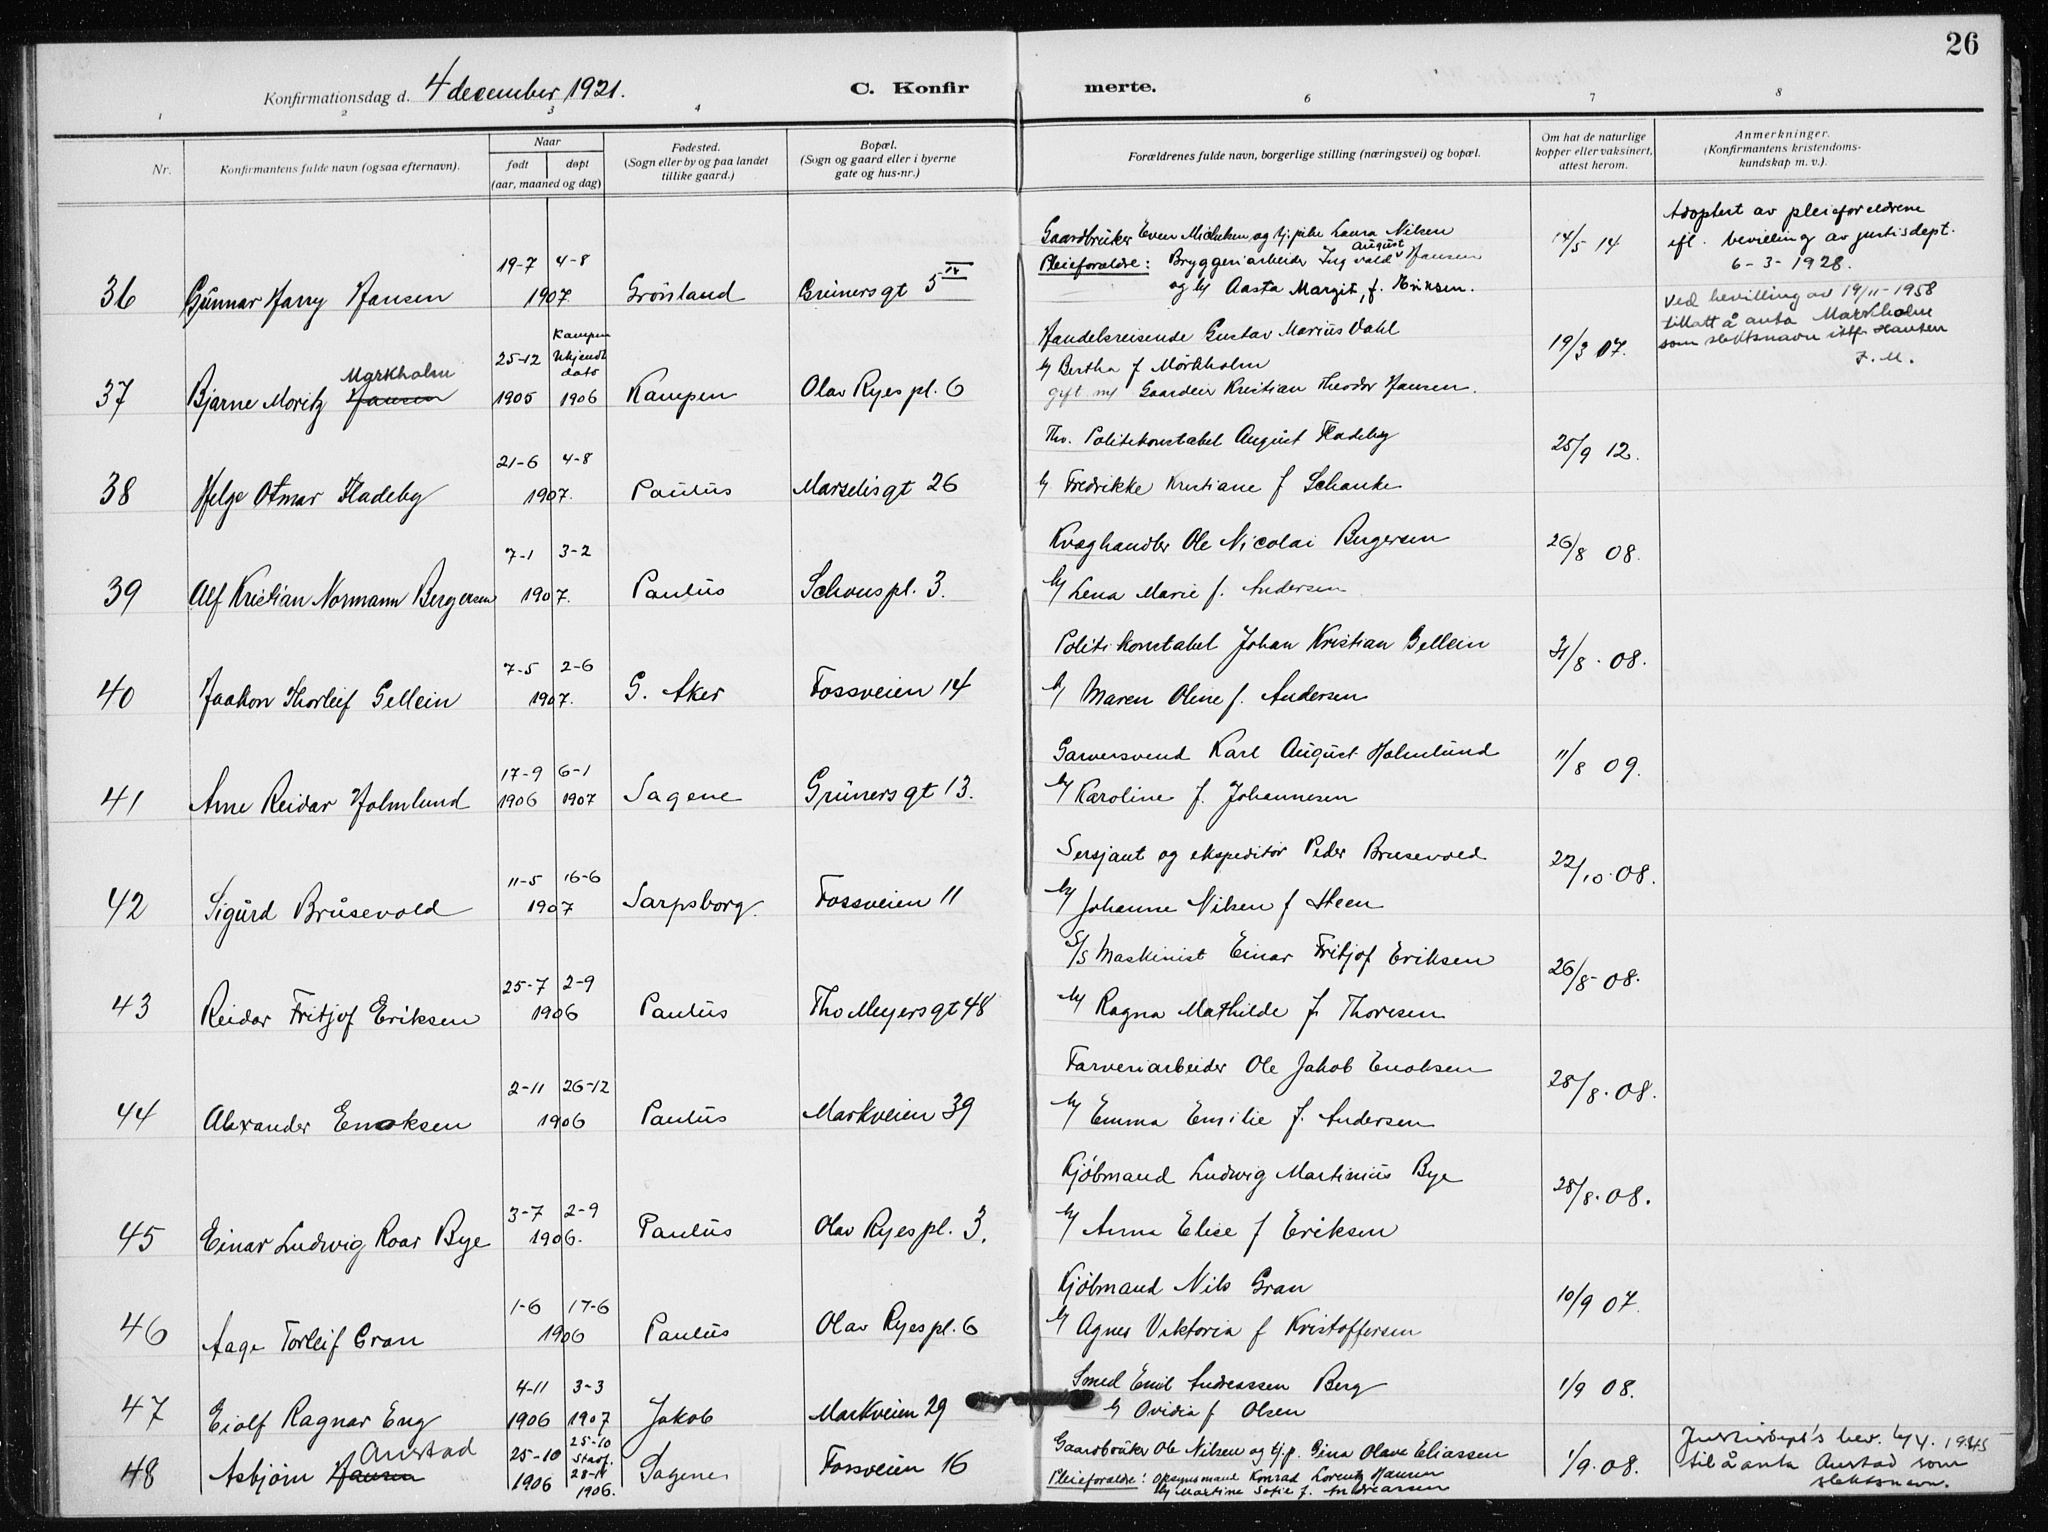 26
Konfirmationsdag d. 4 december 1921. C. Konfirmerte.
1 2 3 4 6 7 8
Nr. Konfirmantens fulde navn (ogsaa efternavn). Naar født døpt (aar, maaned og dag) Fødested. (Sogn eller by og paa landet tillike gaard.) Bopæl. (Sogn og gaard eller i byerne gate og hus-nr.) Forældrenes fulde navn, borgerlige stilling (næringsvei) og bopæl. Om hat de naturlige kopper eller vaksinert, attest herom. Anmerkninger. (Konfirmantens kristendoms-kundskap m. v.).
36 Gunnar Harry Hansen 19-7 4-8 1907. Grønland Grünersgt 5 IV
Gaardbruker Even Michelsen og tj. pike Laura Nilsen
Pleieforældre: Bryggeriarbeider Ingvald August Hansen
og h/ Aasta Margit, f. Eriksen.
14/5 14
Adoptert av pleieforeldrene
ifl. bevilling av justisdept.
6-3-1928.
37 Bjarne Moritz Hansen Mørkholm 25-12 1905 Kampen Ukjendt dato 1906 Kampen Olav Ryes pl. 6
Handelsreisende Gustav Marius Dahl
h/ Bertha f Mörkholm
gift m/ Gaardeier Kristian Theodor Hansen.
19/3 07.
Ved bevilling av 19/11-1958
tillatt å anta Mørkholm
som slektsnavn istf. Hansen
38 Helge Otmar Fladeby 21-6 4-8 1907. Paulus Marselisgt 26
Fhv. Politikonstabel August Fladeby
h/ Fredrikke Kristiane f Schanke
25/9 12.
39 Alf Kristian Normann Bergersen 7-1 3-2 1907. Paulus Schouspl. 3.
Kvæghandler Ole Nicolai Bergersen
h/ Lena Marie f. Andersen
26/8 08.
40 Haakon Thorleif Gellein 7-5 2-6 1907. G. Aker Fossveien 14
Politikonstabel Johan Kristian Gellein
h/ Maren Oline f. Andersen
31/8. 08.
41 Arne Reidar Holmlund 17-9 1906 6-1 1907 Sagene Grünersgt 13.
Garversvend Karl August Holmlund
h/ Karoline f. Johannesen
11/8 09.
42 Sigurd Brusevold 11-5 16-6 1907 Sarpsborg. Fossveien 11
Sersjant og ekspeditör Peder Brusevold
h/ Johanne Nilsen f Steen
22/10. 08.
43 Reidar Fritjof Eriksen 25-7 2-9 1906 Paulus Tho Meyersgt 48
S/S Maskinist Einar Fritjof Eriksen
h/ Ragna Mathilde f. Thoresen
26/8- 08.
44 Alexander Enoksen 2-11 26-12 1906 Paulus Markveien 39
Farveriarbeider Ole Jakob Enoksen
h/ Emma Emilie f. Andersen
28/8. 08.
45 Einar Ludwig Roar Bye 3-7 2-9 1906. Paulus Olav Ryes pl. 3.
Kjöbmand Ludwig Martinius Bye
h/ Anna Elise f Eriksen
28/8. 08.
46 Aage Torleif Gran 1-6 17-6 1906 Paulus Olav Ryes pl. 6
Kjöbmand Nils Gran
h/ Agnes Viktoria f Kristoffersen
10/9 07.
47 Eiolf Ragnar Eng 4-11 1906 3-3 1907 Jakob Markveien 29
Smed Emil Andreassen Berg
h/ Ovidia f Olsen
1/9 08.
48 Asbjörn Hansen Anstad 25-10 1906 25-10 Stadf. 28-11 1906. Sagene Fossveien 16
Gaardbruker Ole Nilsen og tj.p. Gina Olava Eliassen
Pleieforældre: opsynsmand Konrad Lorentz Hansen
h/ Martine Sofie f. Andreassen
1/9. 08.
Justisdept's bev. 4/4. 1945
til å anta Anstad som
slektsnavn.